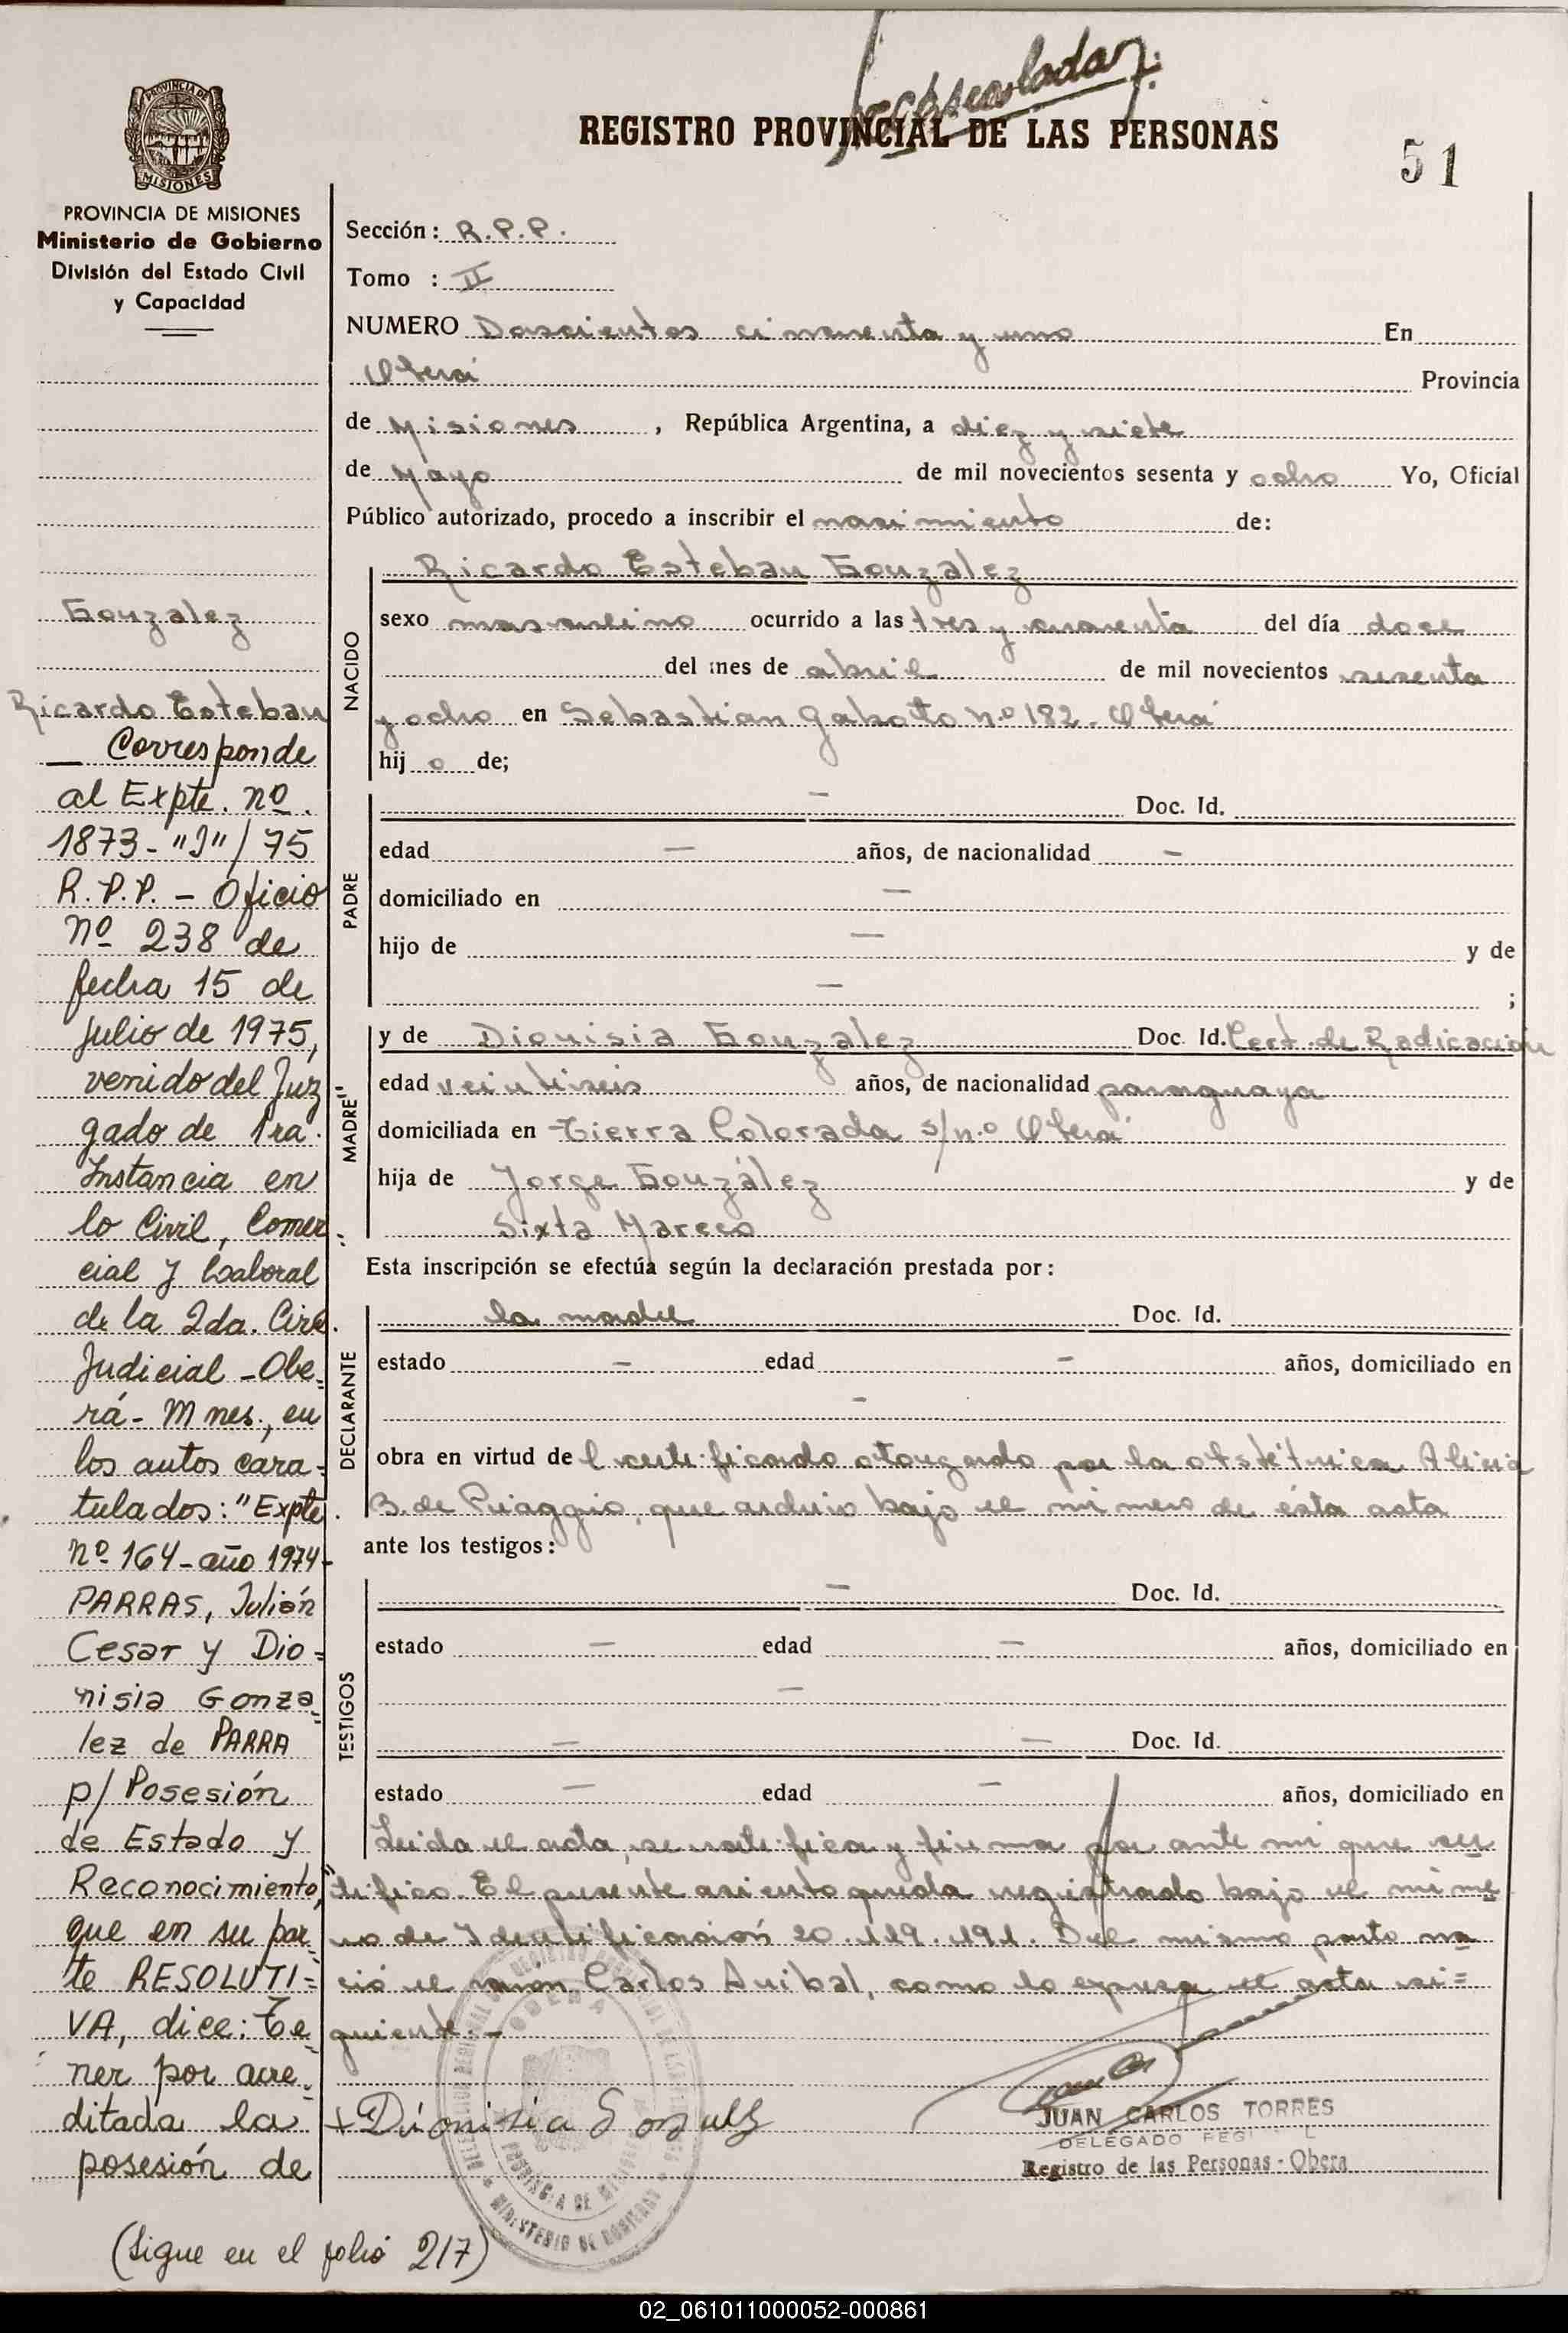 REGISTRO PROVINCIAL DE LAS PERSONAS
51
PROVINCIA DE
MISIONES
PROVINCIA DE MISIONES
Ministerio de Gobierno
División del Estado Civil
y Capacidad
Sección: R.P.P.
Tomo : II
NUMERO Doscientos cincuenta y uno En
Oberá Provincia
de Misiones, República Argentina, a diez y siete
de Mayo de mil novecientos sesenta y ocho Yo, Oficial
Público autorizado, procedo a inscribir el nacimiento de:
NACIDO
Ricardo Esteban González
sexo masculino ocurrido a las tres y cuarenta del día doce
del mes de abril de mil novecientos sesenta
y ocho en Sebastian Gabotto n.o 182. Oberá
hij o de;
PADRE
— Doc. Id.
edad — años, de nacionalidad —
domiciliado en —
hijo de — y de
— ;
MADRE
y de Dionisia González Doc. Id. Cert. de Radicación
edad veintiseis años, de nacionalidad paraguaya
domiciliada en Tierra Colorada s/n.o Oberá
hija de Jorge González y de
Sixta Mareco
Esta inscripción se efectúa según la declaración prestada por:
DECLARANTE
la madre Doc. Id.
estado — edad — años, domiciliado en
—
obra en virtud de l certificado otorgado por la obstétrica Alicia
B. de Priaggio, que archivo bajo el número de ésta acta
ante los testigos:
TESTIGOS
— Doc. Id.
estado — edad — años, domiciliado en
—
— — Doc. Id.
estado — edad — años, domiciliado en
Leida el acta, se ratifica y firma por ante mi que cer
tifico. El presente asiento queda registrado bajo el núme
ro de Identificación 20.119.191. Del mismo parto na
ció el varon Carlos Anibal, como lo expresa el acta si=
guiente.-
+ Dionisia Gonzalez
JUAN CARLOS TORRES
DELEGADO REGI L
Registro de las Personas - Oberá
MINISTERIO DE GOBIERNO
PROVINCIA DE MISIONES
OBERA
González
Ricardo Esteban
— Corresponde
al Expte. nº
1873-"J"/75
R.P.P. - Oficio
nº 238 de
fecha 15 de
Julio de 1975,
venido del Juz
gado de 1ra.
Instancia en
lo Civil, Comer
cial y Laboral
de la 2da. Circ.
Judicial - Obe=
rá - Mnes., en
los autos cara=
tulados: "Expte.
nº 164-año 1974-
PARRAS, Julián
Cesar y Dio=
nisia Gonza=
lez de PARRA
p/ Posesión
de Estado y
Reconocimiento",
que en su par=
te RESOLUTI=
VA, dice: Te=
ner por acre=
ditada la
posesión de
(Sigue en el folio 217)
02_061011000052-000861